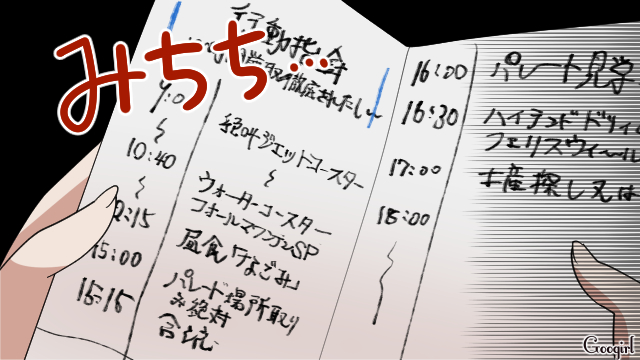 みちち…
行動指針
9:0
絶叫ジェットコースター
10:40
ウォーターコースター
フォールマウンテンSP
12:15
昼食「なごみ」
15:00
パレード場所取り
15:15
絶対
16:00
パレード見学
16:30
ハイランド
フェリスウィール
17:00
土産探し又は
18:00
Googirl